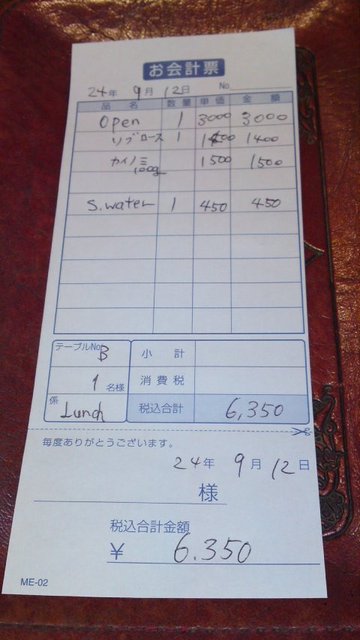 お会計票
24年 9月 12日 No.
品名 数量 単価 金額
Open 1 3000 3000
リブロース 1 1400 1400
カイノミ 1500 1500
100g
S.water 1 450 450
テーブルNo. B 小計
1名様 消費税
係 Lunch 税込合計 6,350
毎度ありがとうございます。
24年 9月 12日
様
税込合計金額
¥ 6.350
ME-02